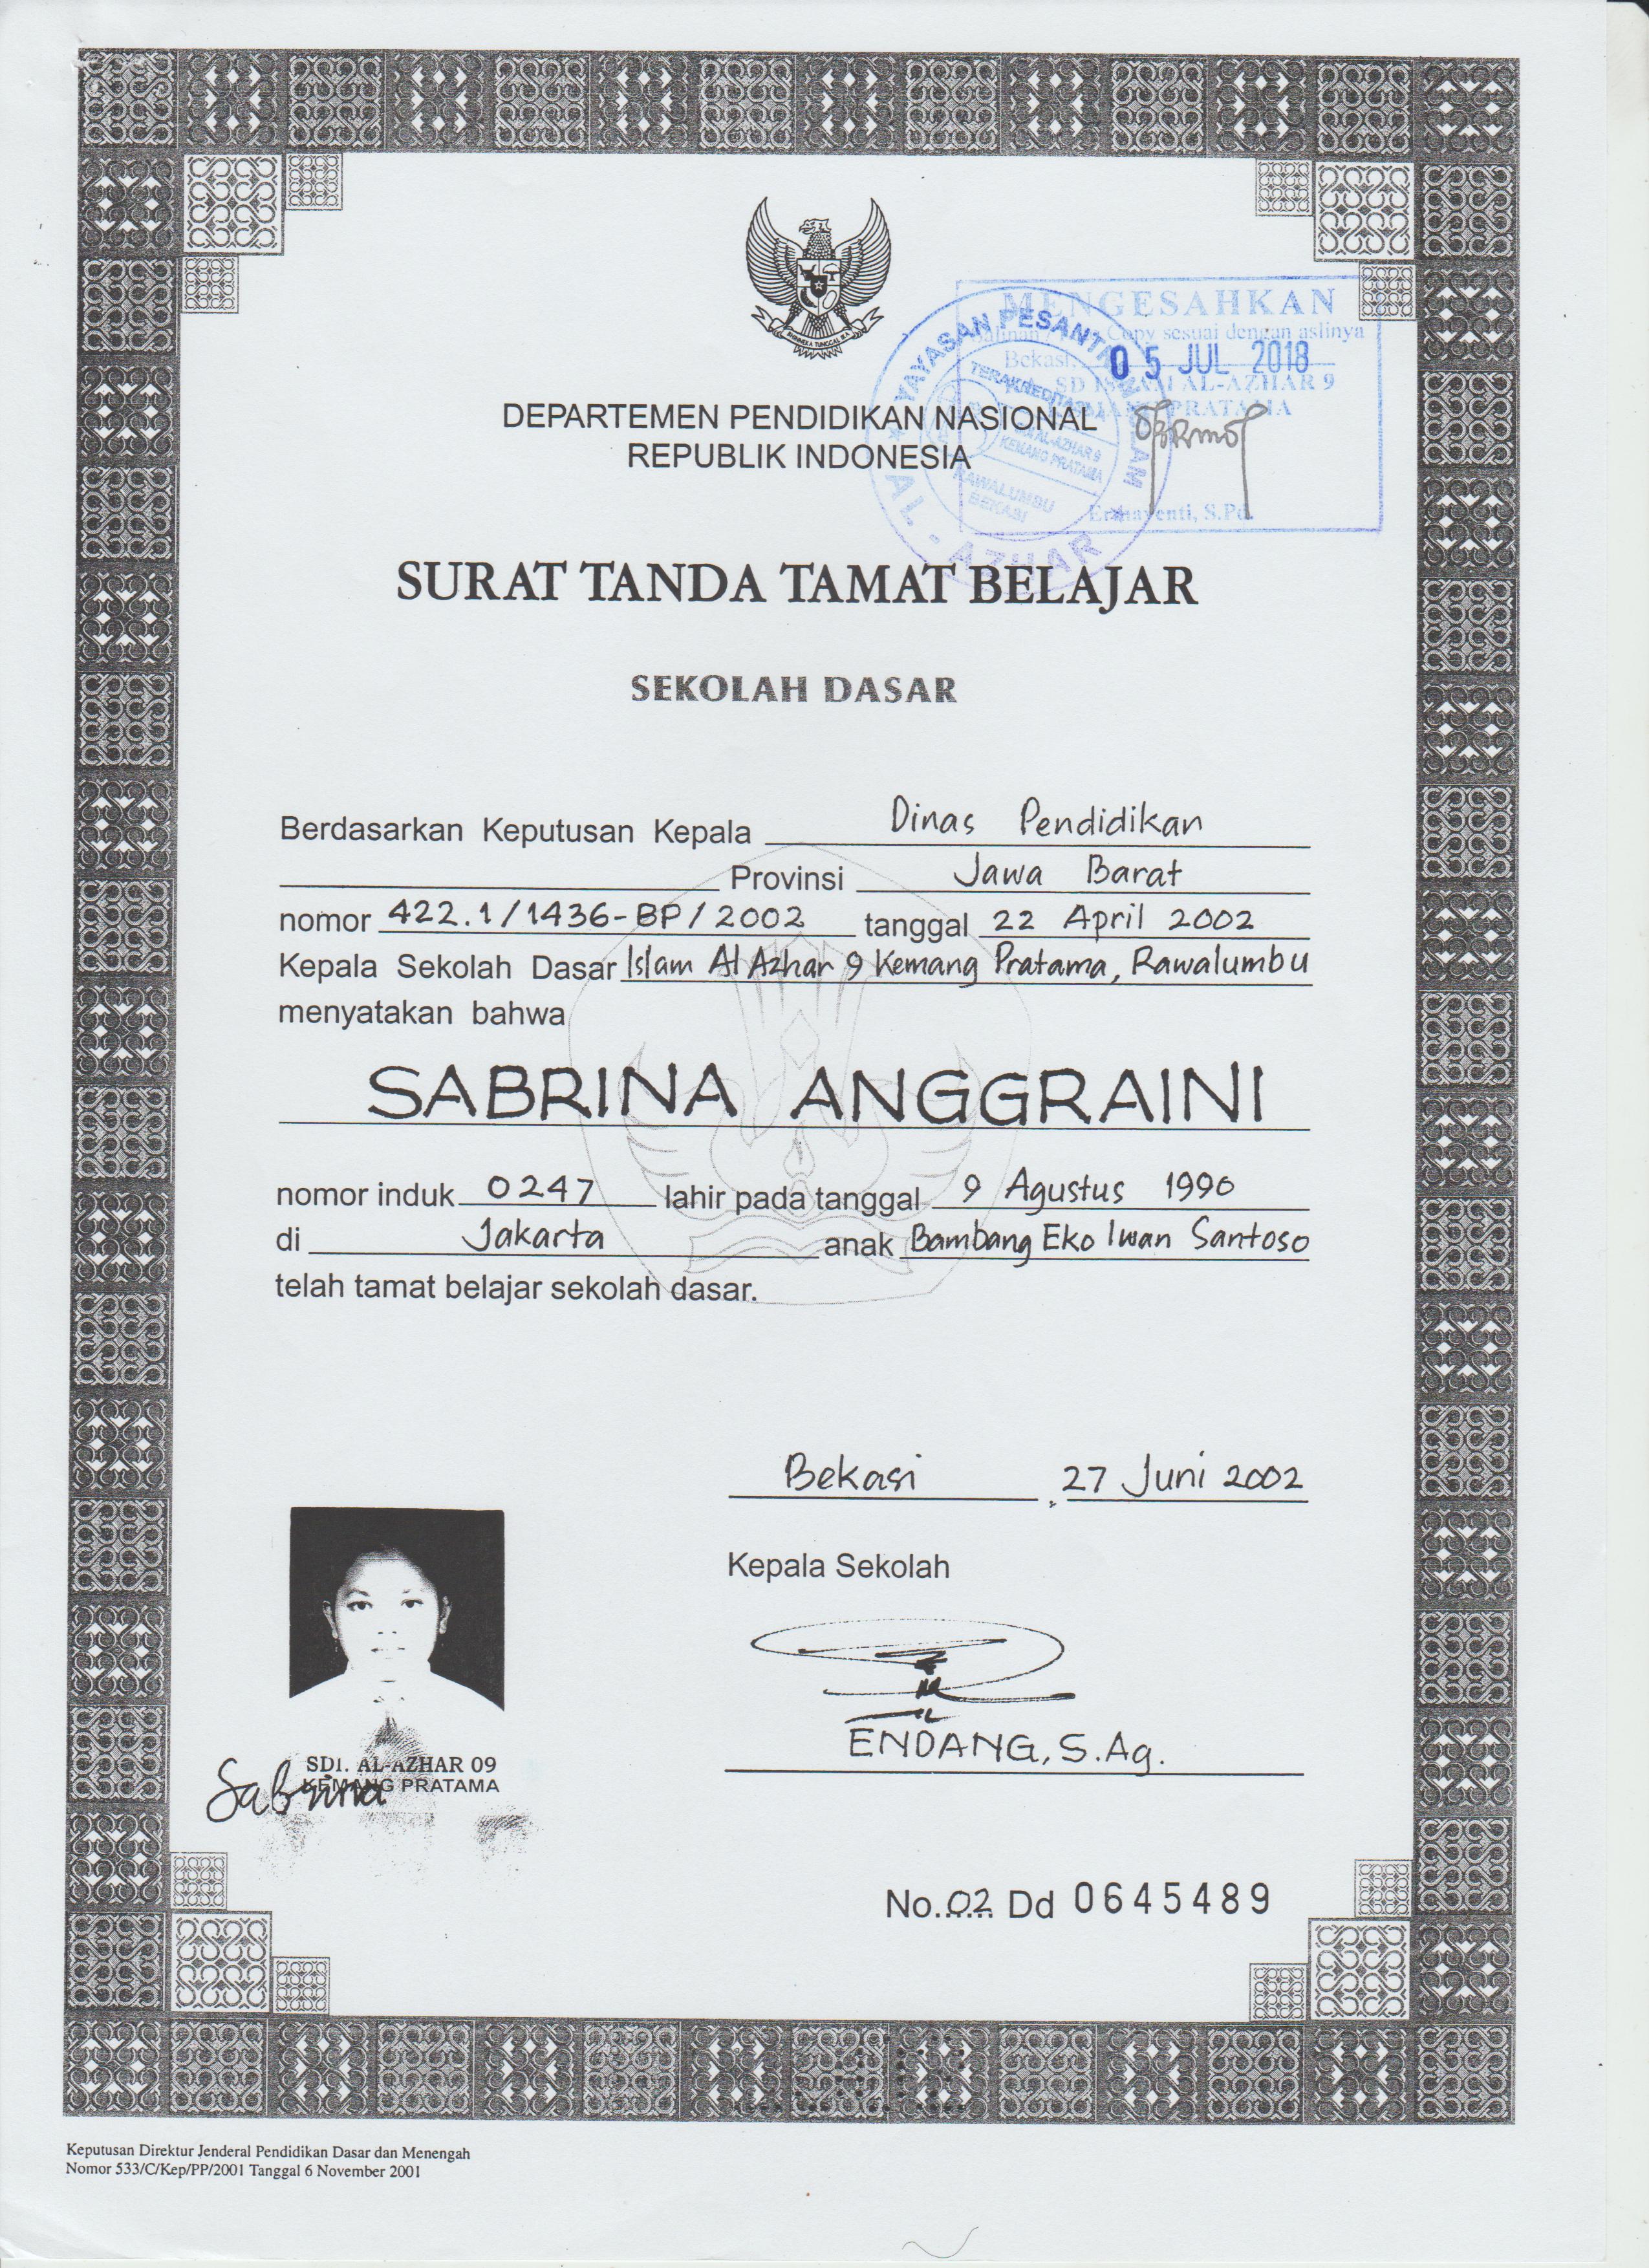 BHINNEKA TUNGGAL IKA
MENGESAHKAN
Copy sesuai dengan aslinya
Bekasi, 05 JUL 2018
SD ISLAM AL-AZHAR 9
KEMANG PRATAMA
Ermayenti, S.Pd.
YAYASAN PESANTREN ISLAM
AL - AZHAR
TERAKREDITASI
SDI AL-AZHAR 9
KEMANG PRATAMA
RAWALUMBU
BEKASI
DEPARTEMEN PENDIDIKAN NASIONAL
REPUBLIK INDONESIA
SURAT TANDA TAMAT BELAJAR
SEKOLAH DASAR
Berdasarkan Keputusan Kepala Dinas Pendidikan
Provinsi Jawa Barat
nomor 422.1/1436-BP/2002 tanggal 22 April 2002
Kepala Sekolah Dasar Islam Al Azhar 9 Kemang Pratama, Rawalumbu
menyatakan bahwa
SABRINA ANGGRAINI
nomor induk 0247 lahir pada tanggal 9 Agustus 1990
di Jakarta anak Bambang Eko Iwan Santoso
telah tamat belajar sekolah dasar.
Bekasi, 27 Juni 2002
Kepala Sekolah
ENDANG, S.Ag.
SDI. AL-AZHAR 09
KEMANG PRATAMA
Sabrina
No. 02 Dd 0645489
Keputusan Direktur Jenderal Pendidikan Dasar dan Menengah
Nomor 533/C/Kep/PP/2001 Tanggal 6 November 2001